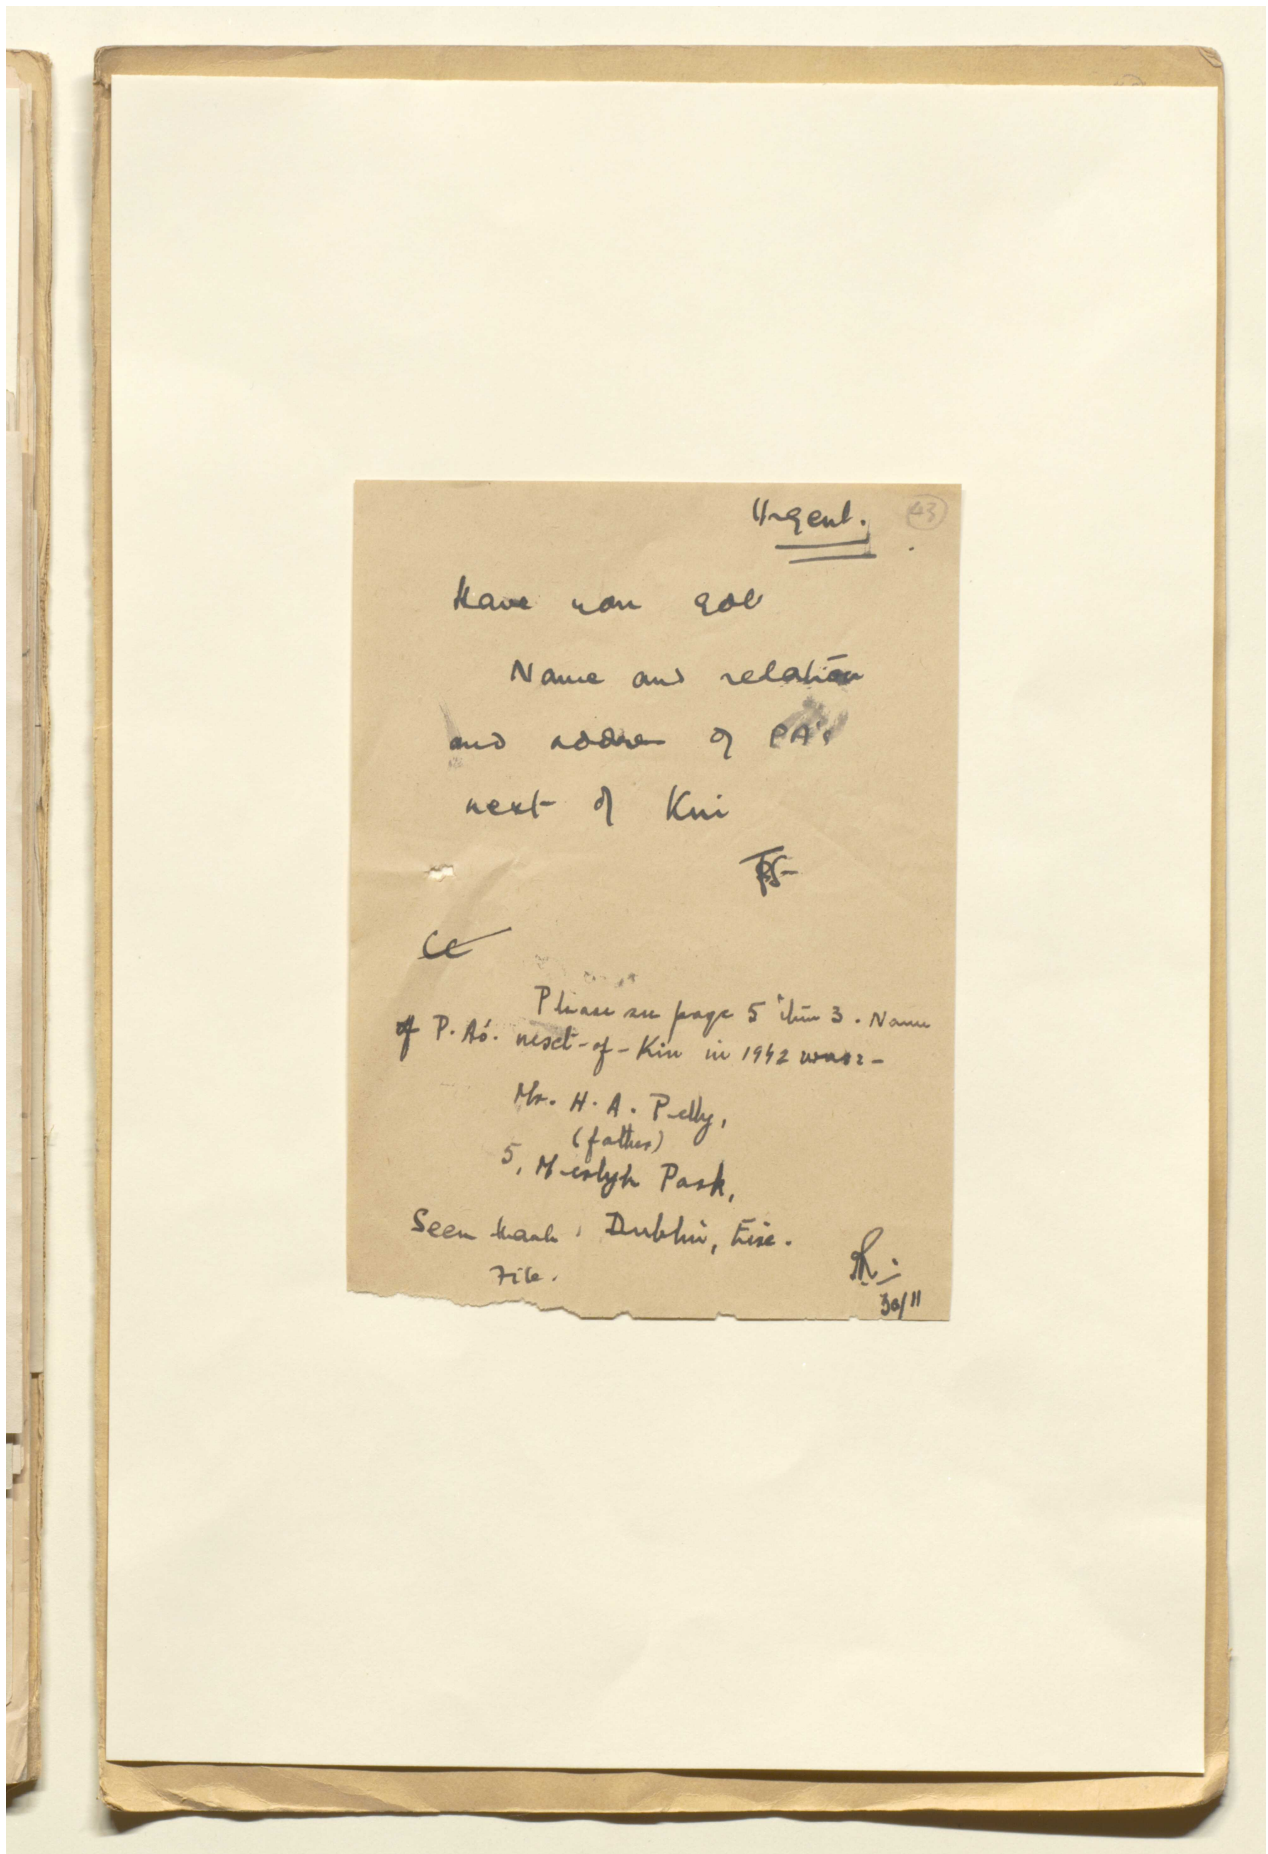 Urgent.
43
Have you got
Name and relation
and address of PA's
next of Kin
Please see page 5 item 3. Name
of P. A's. next-of-Kin in 1942 was:-
Mr. H. A. Pelly,
(father)
5, Merlyn Park,
Dublin, Eire.
Seen thanks
File.
30/11